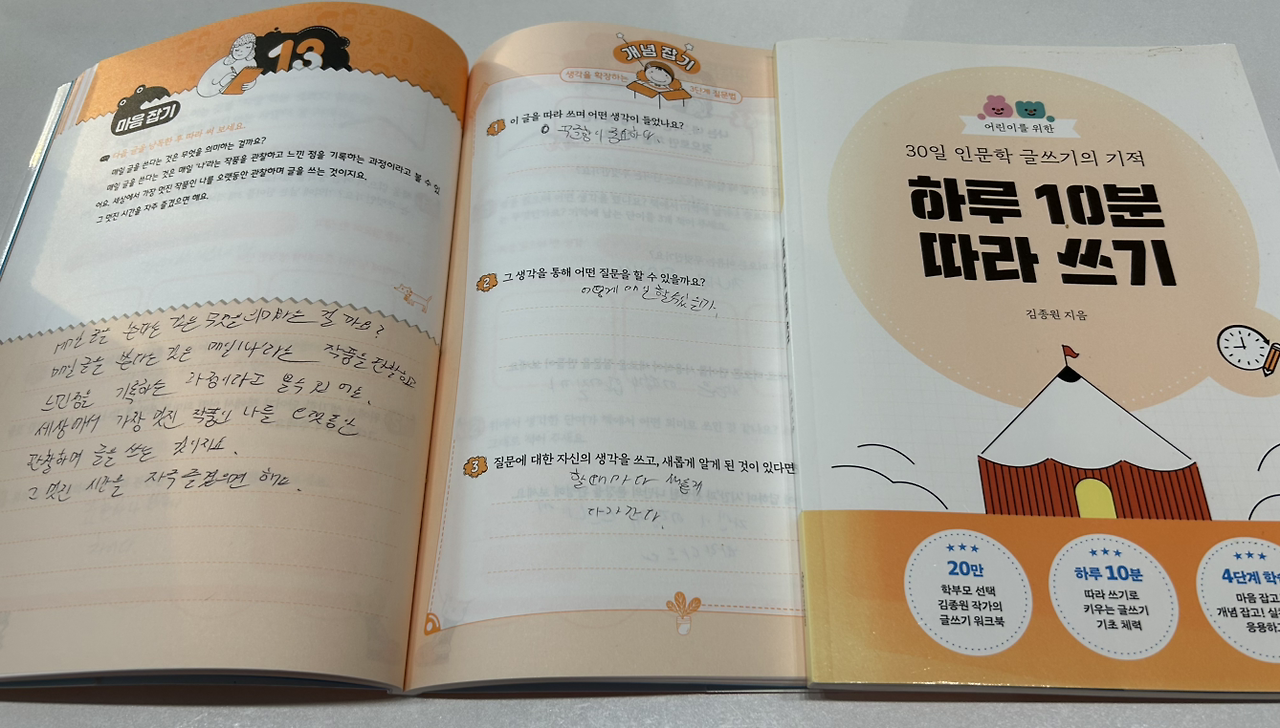 13
마음 잡기
다음 글을 낭독한 후 따라 써 보세요.
매일 글을 쓴다는 것은 무엇을 의미하는 걸까요?
매일 글을 쓴다는 것은 매일 '나'라는 작품을 관찰하고 느낀 점을 기록하는 과정이라고 볼 수 있
어요. 세상에서 가장 멋진 작품인 나를 오랫동안 관찰하며 글을 쓰는 것이지요.
그 멋진 시간을 자주 즐겼으면 해요.
매일 글을 쓴다는 것은 무엇을 의미하는 걸까요?
매일 글을 쓴다는 것은 매일 '나'라는 작품을 관찰하고
느낀점을 기록하는 과정이라고 볼수 있어요.
세상에서 가장 멋진 작품인 나를 오랫동안
관찰하며 글을 쓰는 것이지요.
그 멋진 시간을 자주 즐겼으면 해요.
개념 잡기
생각을 확장하는 3단계 질문법
1 이 글을 따라 쓰며 어떤 생각이 들었나요?
꾸준함이 중요하다.
2 그 생각을 통해 어떤 질문을 할 수 있을까요?
어떻게 매일 할수있을까.
3 질문에 대한 자신의 생각을 쓰고, 새롭게 알게 된 것이 있다면
할때마다 새롭게
다가간다.
어린이를 위한
30일 인문학 글쓰기의 기적
하루 10분
따라 쓰기
김종원 지음
20만
학부모 선택
김종원 작가의
글쓰기 워크북
하루 10분
따라 쓰기로
키우는 글쓰기
기초 체력
4단계 학습
마음 잡고
개념 잡고! 실
응용하고